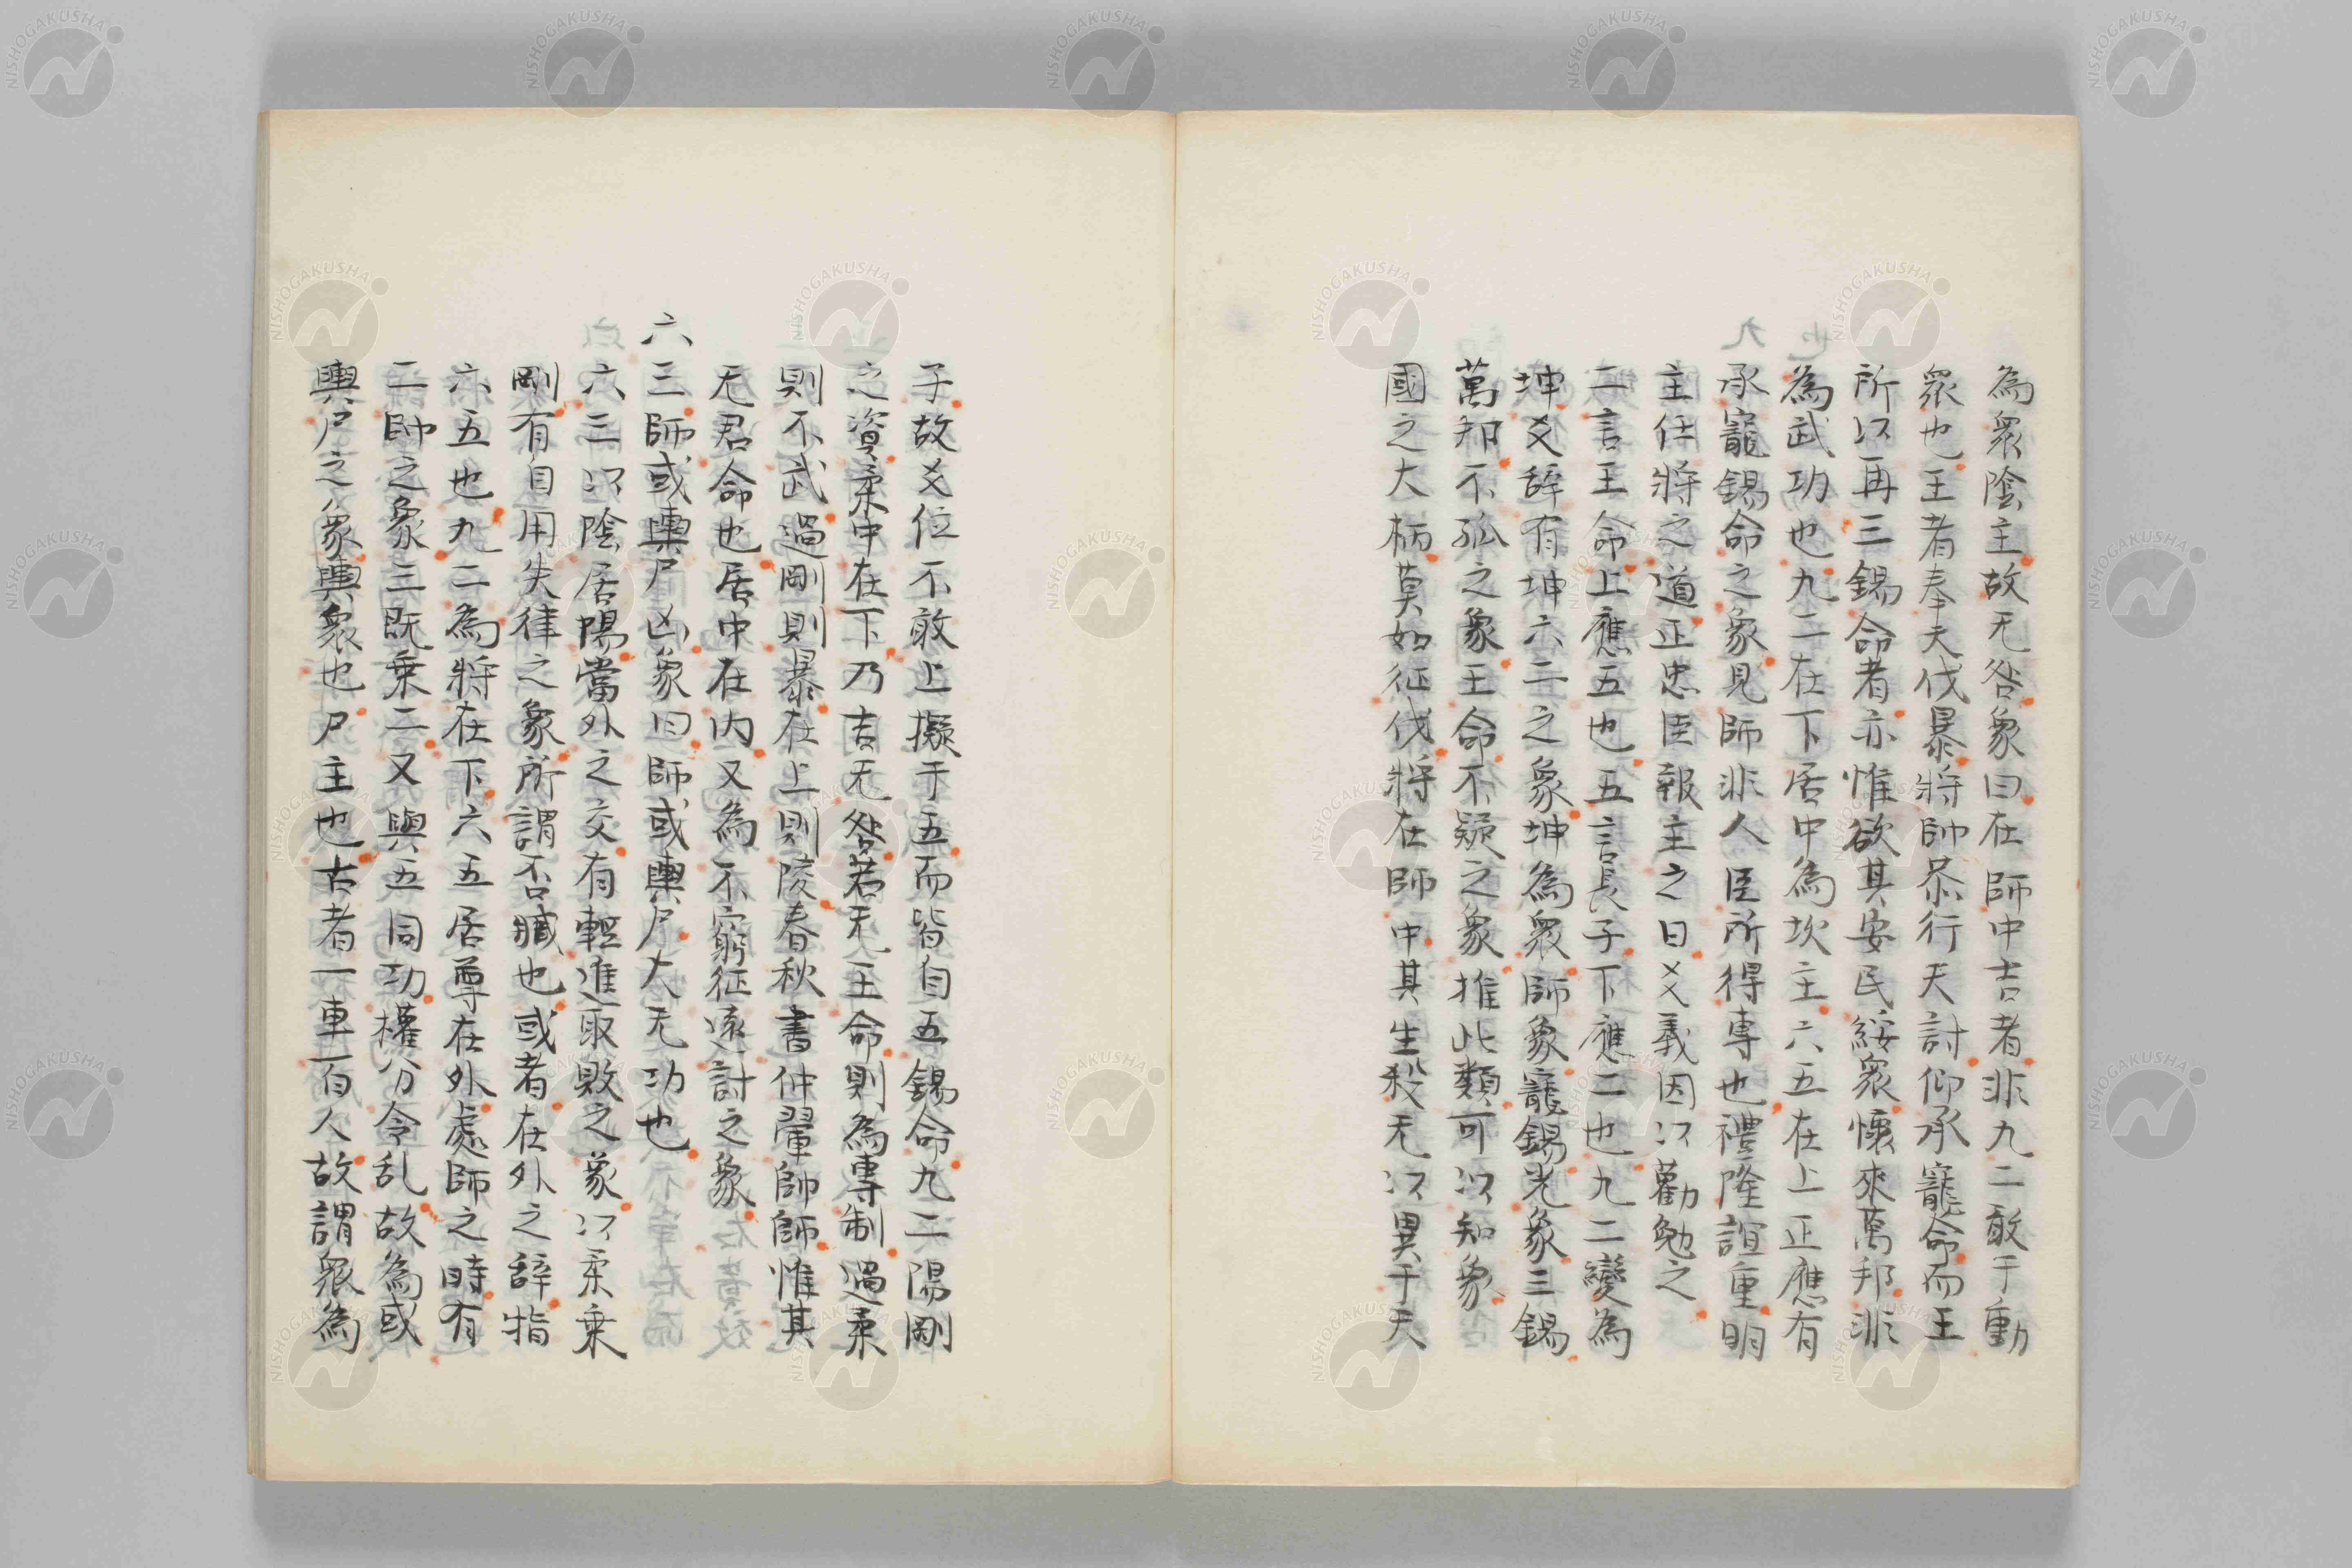 為衆陰主故无咎象曰在師中吉者非九二敢于動
衆也王者奉天伐暴將帥恭行天討仰承寵命而王
所以再三錫命者亦惟欲其安民綏衆懷來萬邦非
為武功也九二在下居中為坎主六五在上正應有
承寵錫命之象見師非人臣所得專也禮隆誼重明
主任將之道正忠臣報主之日爻義因以勸勉之
二言王命上應五也五言長子下應二也九二變為
坤爻辞有坤六二之象坤為衆師象寵錫光象三錫
萬邦不孤之象王命不疑之象推此類可以知象
國之大柄莫如征伐將在師中其生殺无以異于天
子故爻位不敢上擬于五而皆自五錫命九二陽剛
之資柔中在下乃吉无咎若无王命則為專制過柔
則不武過剛則暴在上則陵春秋書仲翬帥師惟其
无君命也居中在内又為不窮征遠討之象
六三師或輿尸凶象曰師或輿尸大无功也
六三以陰居陽當外之交有輕進取敗之象以柔乗
剛有自用失律之象所謂否臧也或者在外之辞指
六五也九二為將在下六五居尊在外處師之時有
二帥之象三既乗二又與五同功權分令乱故為或
輿尸之象輿衆也尸主也古者一車百人故謂衆為
NISHOGAKUSHA